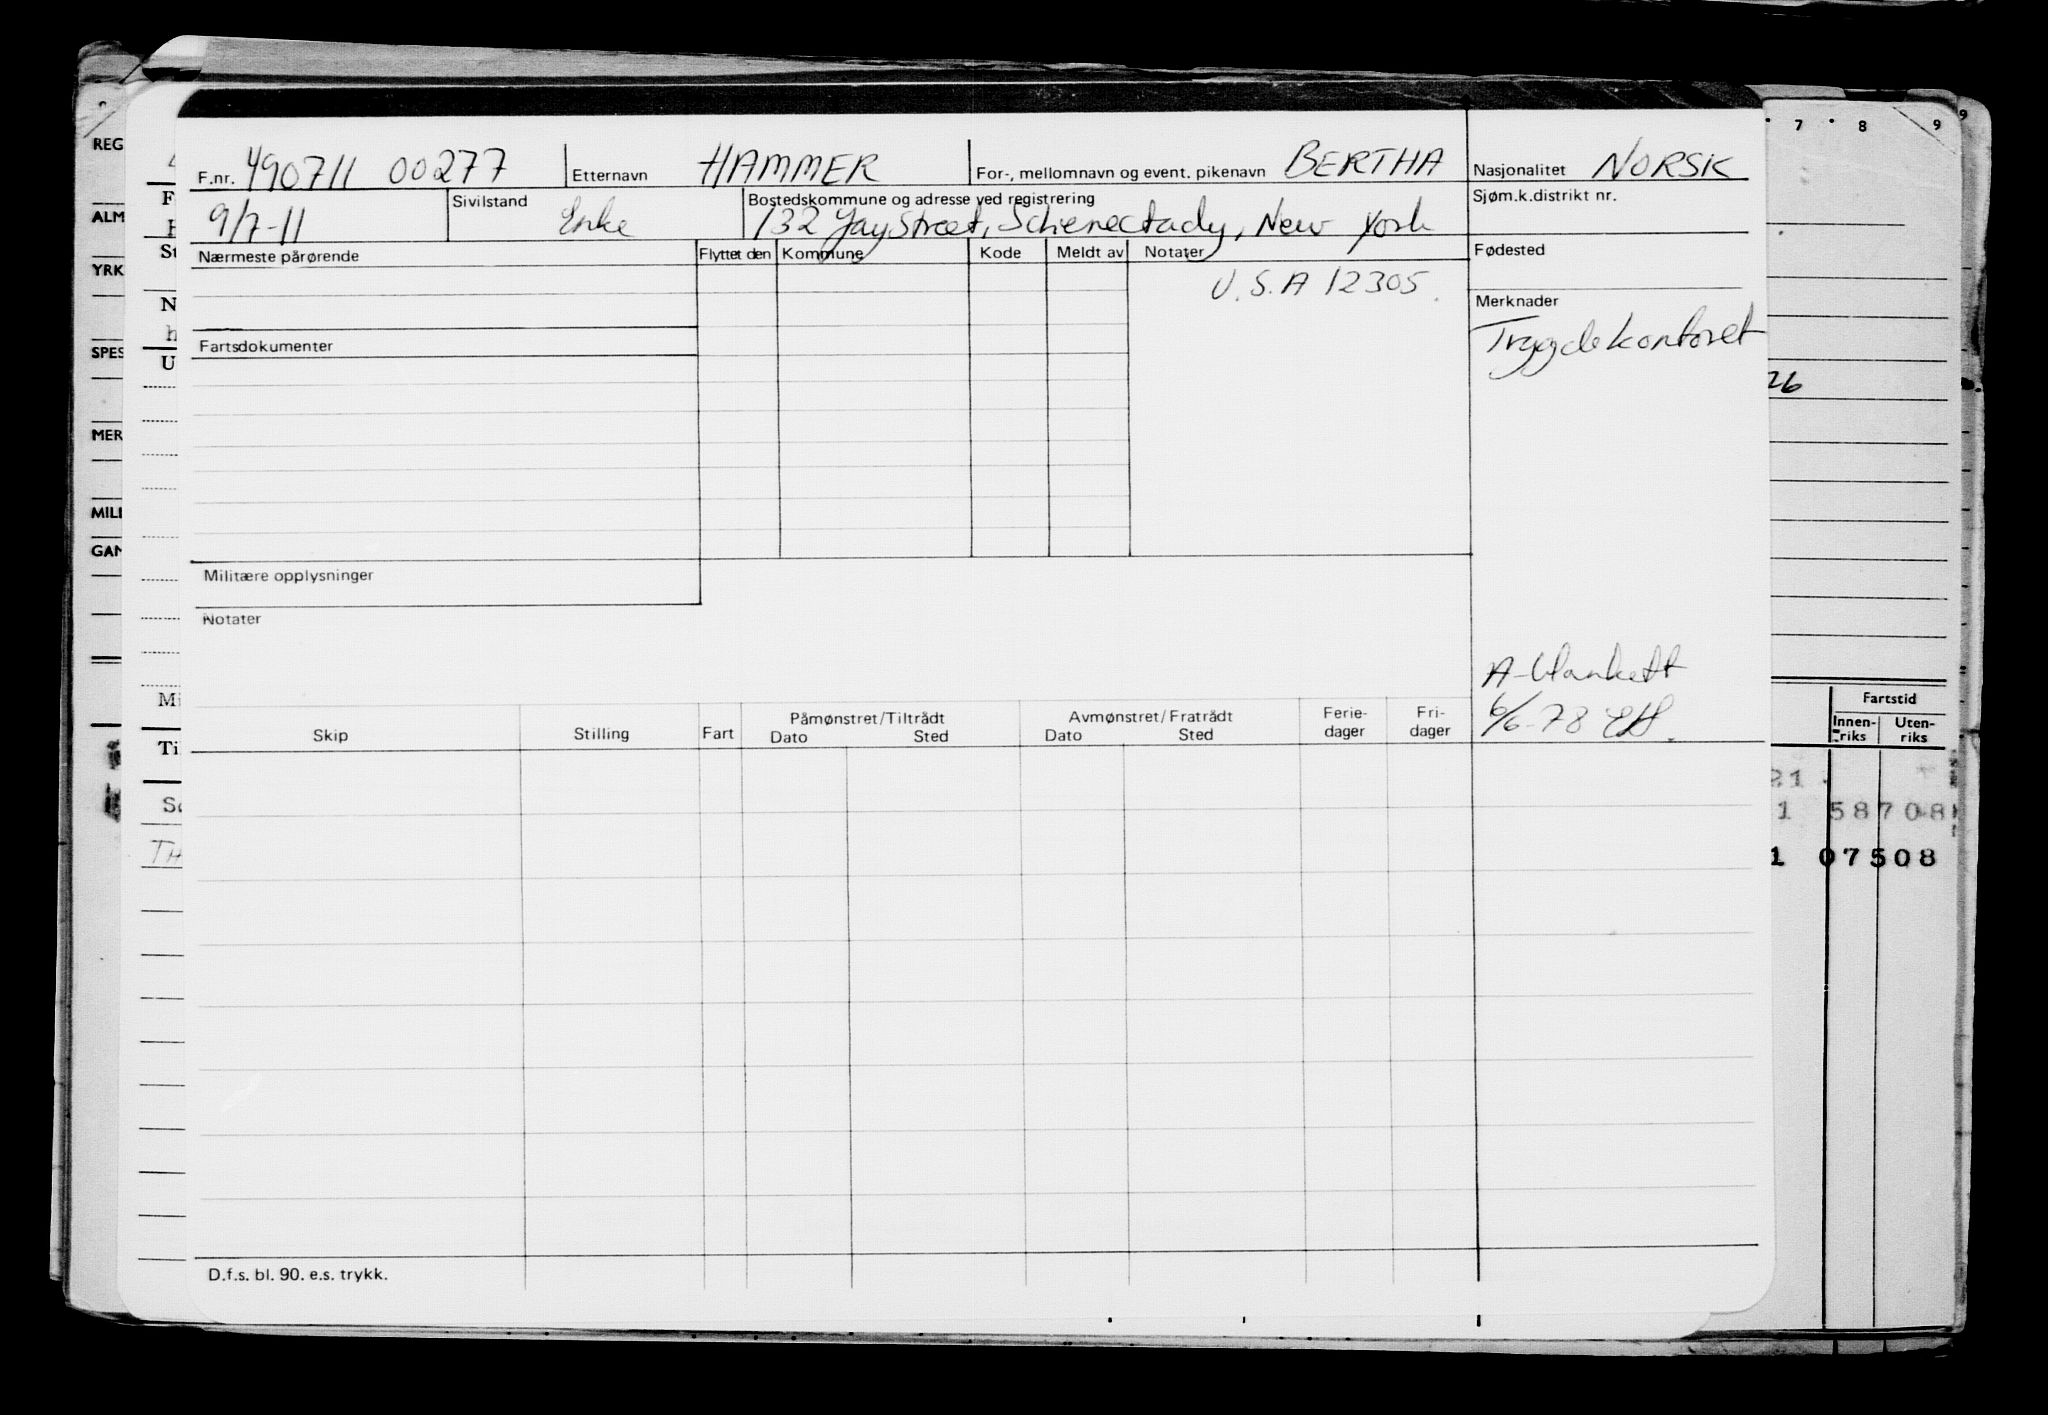 F.nr. 490711 00277 Etternavn HAMMER For-, mellomnavn og event. pikenavn BERTHA Nasjonalitet NORSK
9/7-11 Sivilstand Enke Bostedskommune og adresse ved registrering Sjøm.k.distrikt nr.
132 Jay Street, Schenectady, New York
Nærmeste pårørende Flyttet den Kommune Kode Meldt av Notater Fødested
U.S.A 12305.
Merknader
Trygdekontoret
Fartsdokumenter
Militære opplysninger
Notater
A-blankett
6/6-78 EH.
Skip Stilling Fart Påmønstret/Tiltrådt Avmønstret/Fratrådt Ferie- Fri-
Dato Sted Dato Sted dager dager
D.f.s. bl. 90. e.s. trykk.
7 8 9 9
REG
ALM
YRK
SPES
MER
MILI
GAN
St
N
U
Mi
Ti
TH
26
Fartstid
Innen- Uten-
riks riks
21
1 58708
1 07508